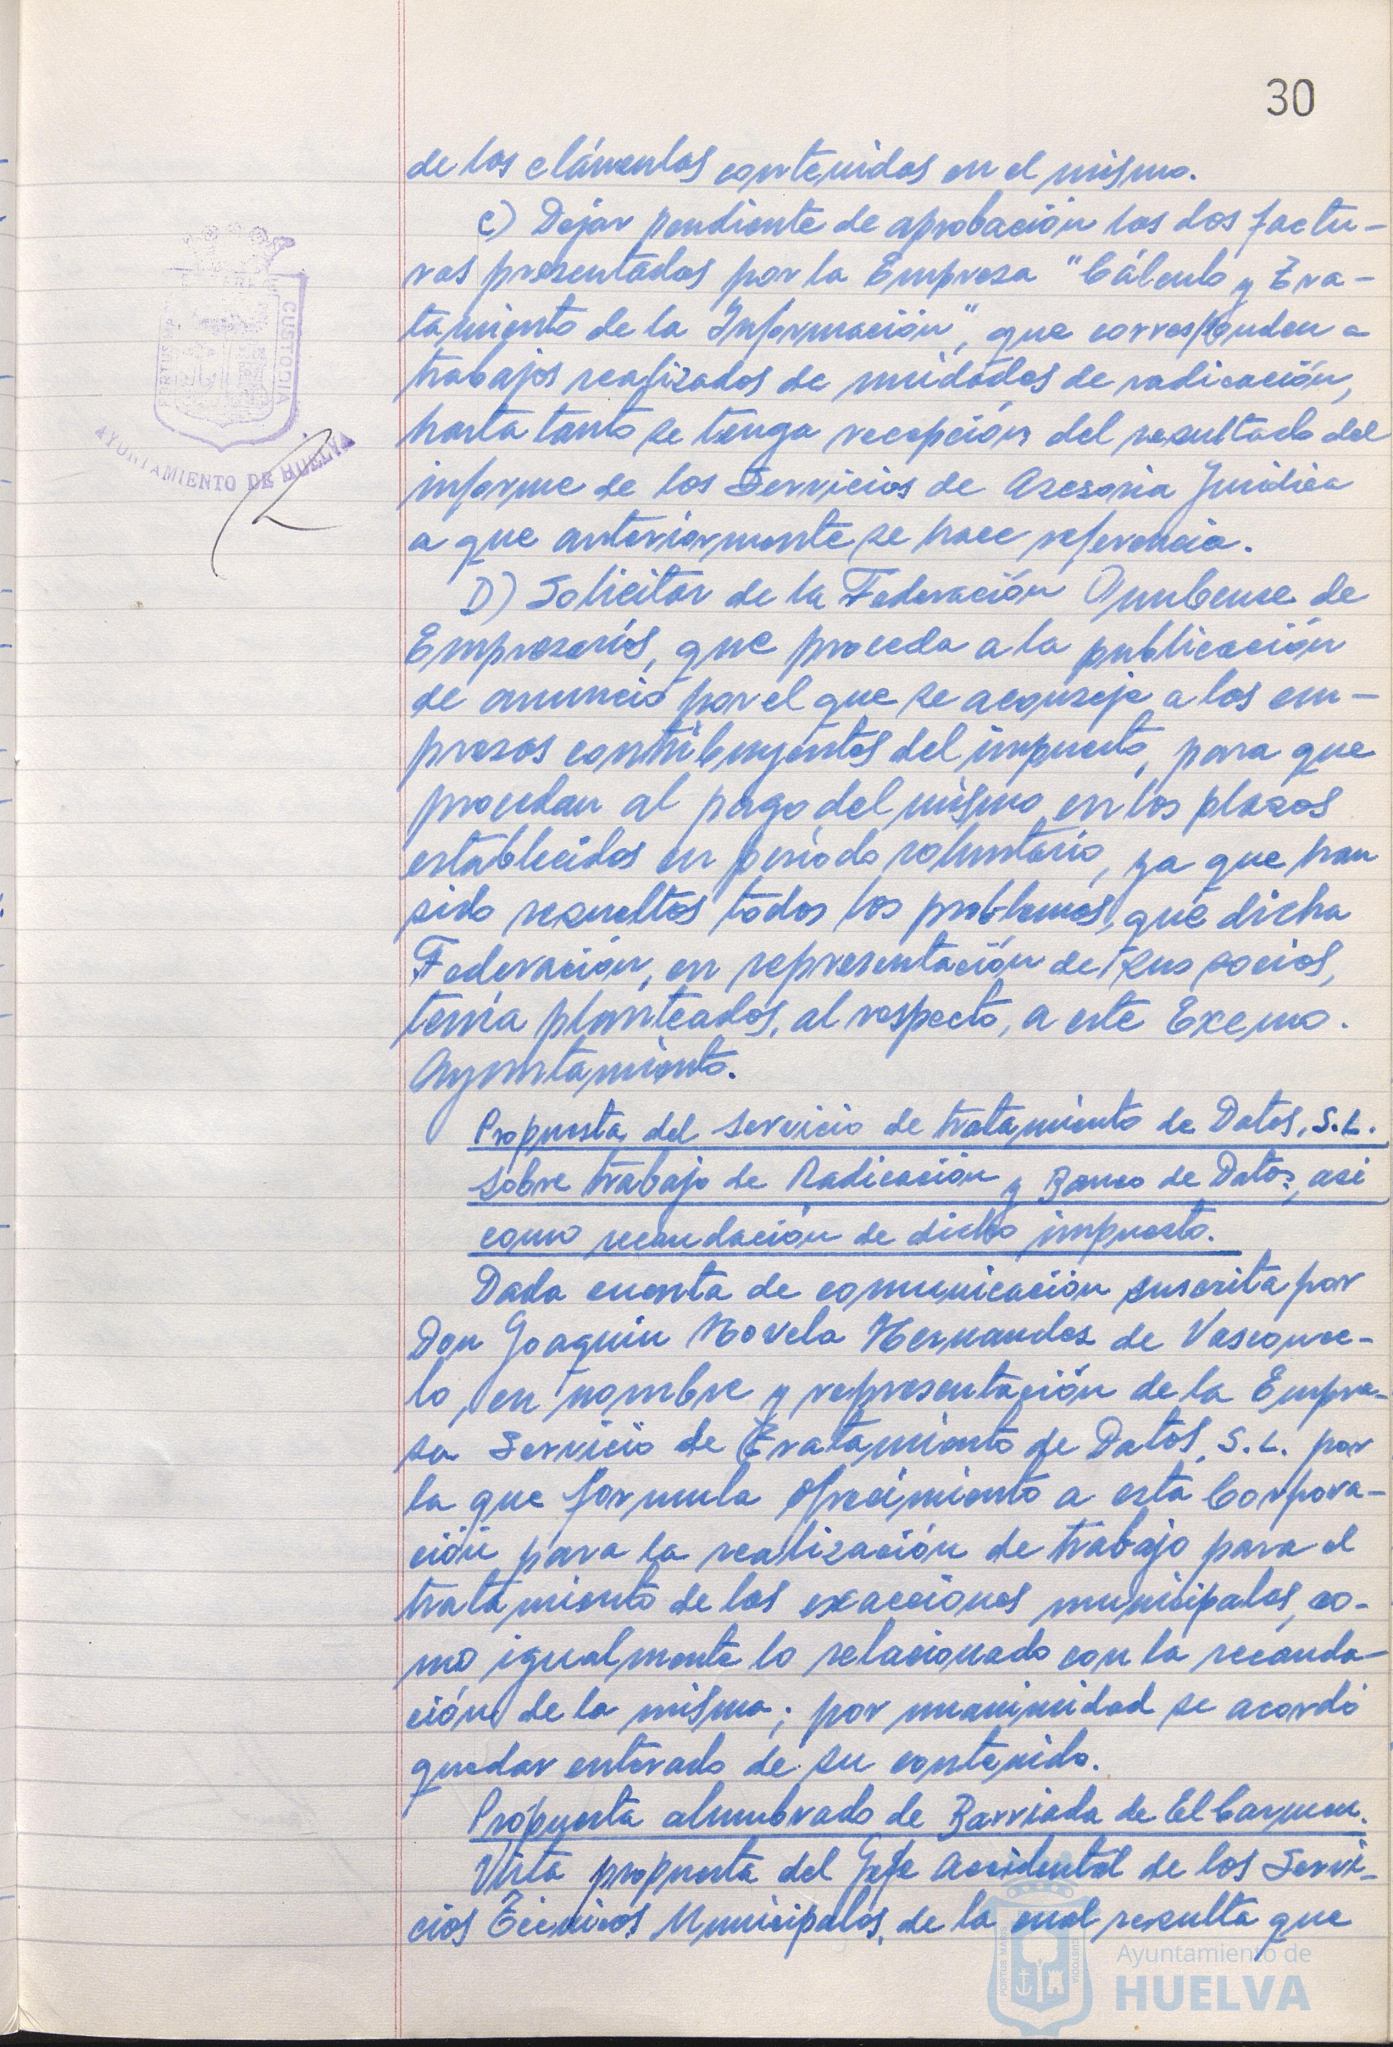 30
de las cláusulas contenidas en el mismo.
C) Dejar pendiente de aprobación las dos factu-
ras presentadas por la Empresa "Cálculo y Tra-
tamiento de la Información", que corresponden a
trabajos realizados de unidades de radicación,
hasta tanto se tenga recepción del resultado del
informe de los Servicios de Asesoria Juridica
a que anteriormente se hace referencia.
D) Solicitar de la Federación Onubense de
Empresarios, que proceda a la publicación
de anuncio por el que se aconseje a los em-
presas contribuyentes del impuesto, para que
procedan al pago del mismo en los plazos
establecidos en período voluntario, ya que han
sido resueltos todos los problemas, que dicha
Federación, en representación de sus socios,
tenía planteados, al respecto, a este Excmo.
Ayuntamiento.
Propuesta del servicio de tratamiento de Datos, S.L.
sobre trabajo de Radicación y Banco de Datos, asi
como recaudación de dicho impuesto.
Dada cuenta de comunicación suscrita por
Don Joaquin Novela Hernandez de Vasconce-
lo, en nombre y representación de la Empre-
sa Servicio de Tratamiento de Datos, S.L. por
la que formula ofrecimiento a esta Corpora-
ción para la realización de trabajo para el
tratamiento de las exacciones municipales, co-
mo igualmente lo relacionado con la recauda-
ción de la misma; por unanimidad se acordó
quedar enterado de su contenido.
Propuesta alumbrado de Barriada de El Carmen.
Vista propuesta del Jefe Accidental de los Servi-
cios Técnicos Municipales, de la cual resulta que
PORTUS MARIS
CUSTODIA
AYUNTAMIENTO DE HUELVA
PORTUS MARIS
CUSTODIA
Ayuntamiento de
HUELVA